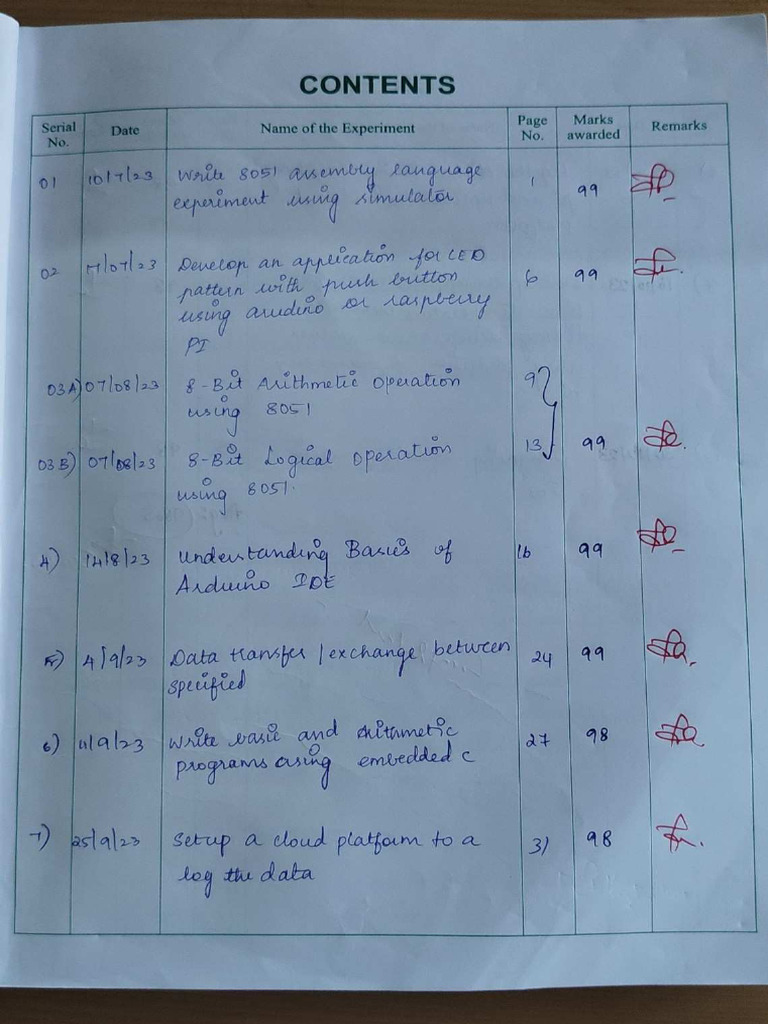 CONTENTS
Serial No. Date Name of the Experiment Page No. Marks awarded Remarks
01 10/7/23 Write 8051 assembly language 1 99
experiment using simulator
02 17/07/23 Develop an application for LED 6 99
pattern with push button
using arudino or raspberry
PI
03A) 07/08/23 8-Bit Arithmetic operation 9
using 8051
03B) 07/08/23 8-Bit Logical operation 13 99
using 8051.
4) 14/8/23 Understanding Basics of 16 99
Arduino IDE
5) 4/9/23 Data transfer / exchange between 24 99
specified
6) 11/9/23 Write basic and Arithmetic 27 98
programs using embedded c
7) 25/9/23 Setup a cloud platform to a 31 98
log the data